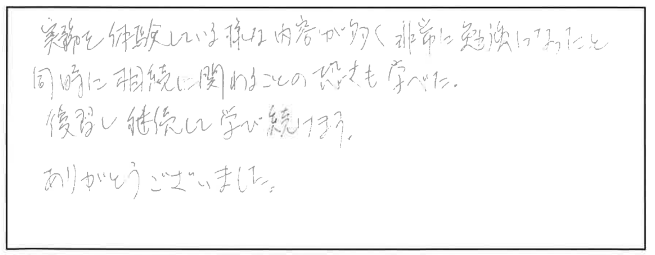 実務を体験している様な内容が多く非常に勉強になったと
同時に相続に関わることの恐さも学べた。
復習し継続して学び続けます。
ありがとうございました。